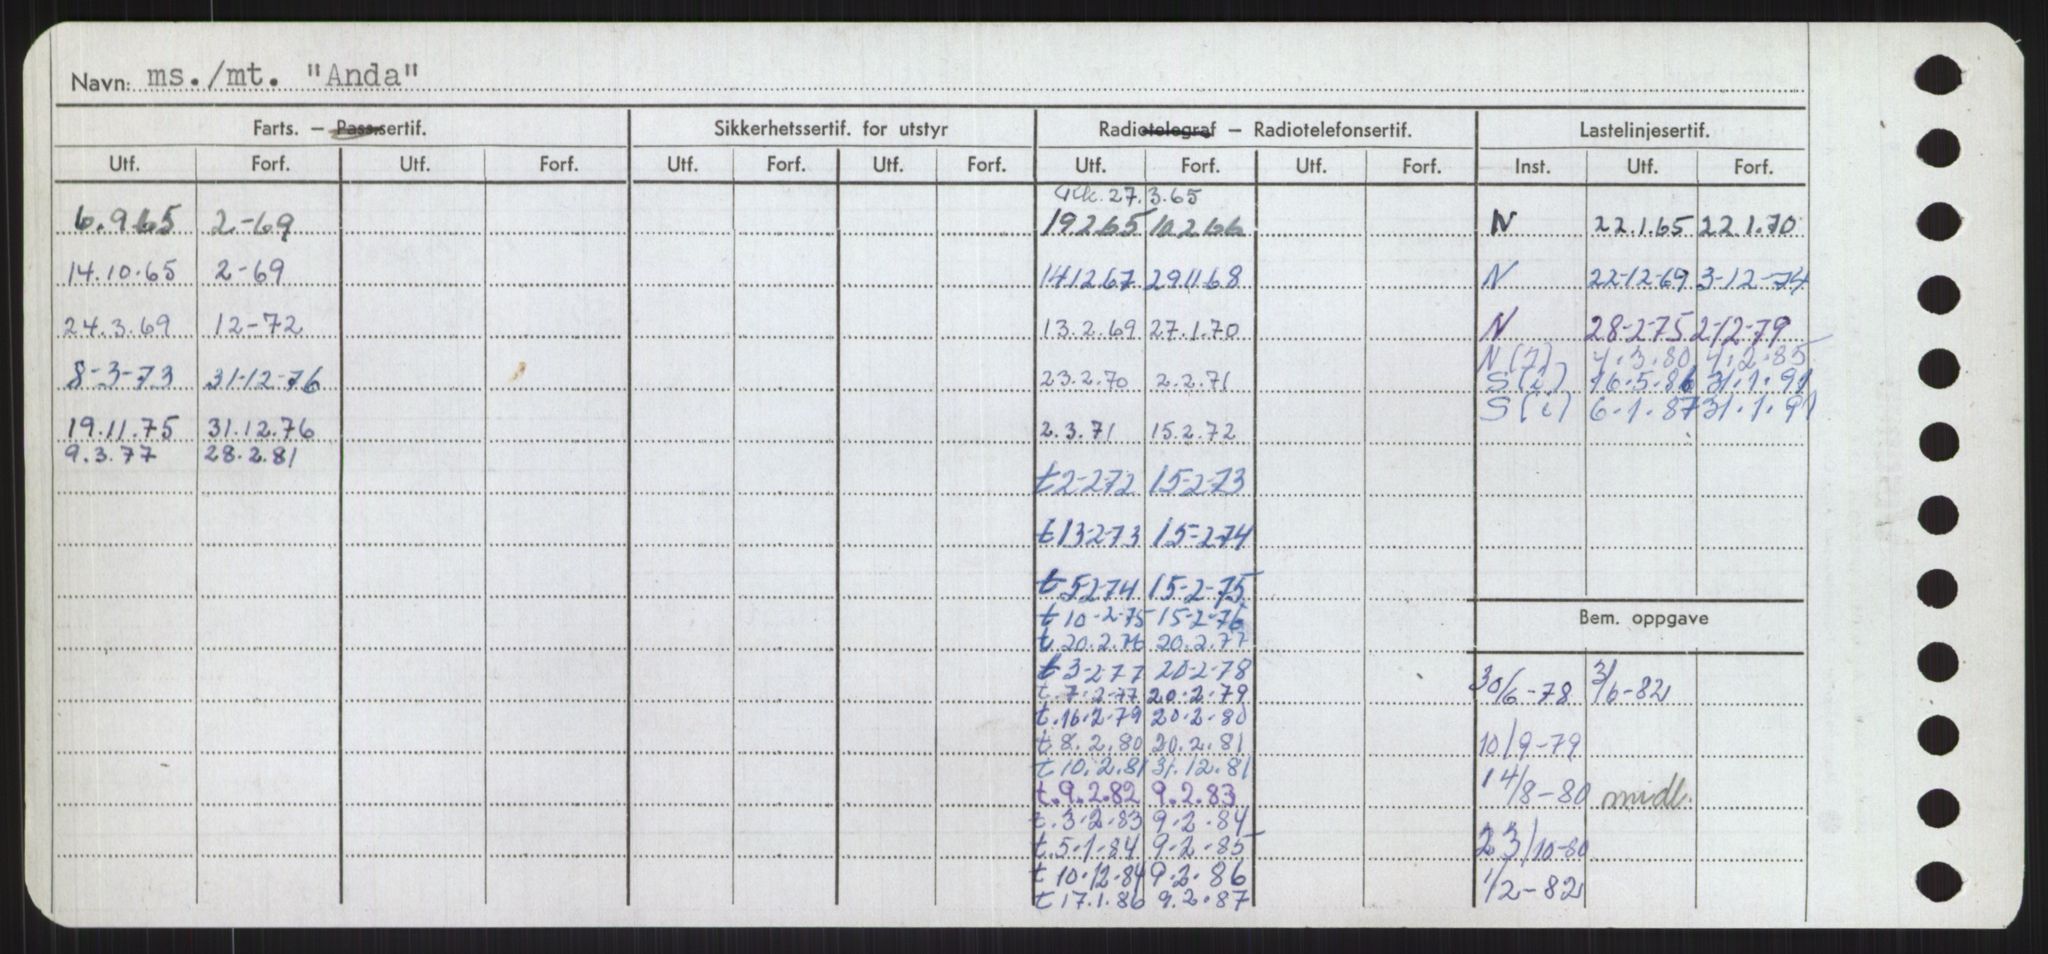 Navn: ms./mt. "Anda"
Farts. – Pass.sertif. Sikkerhetssertif. for utstyr Radiotelegraf – Radiotelefonsertif. Lastelinjesertif.
Utf. Forf. Utf. Forf. Utf. Forf. Utf. Forf. Utf. Forf. Utf. Forf. Inst. Utf. Forf.
27.3.65
6.9.65 2-69 19265 10.266 N 22.1.65 22.1.70
14.10.65 2-69 141267 291168 N 22-12-69 3-12-74
24.3.69 12-72 13.2.69 27.1.70 N 28-2-75 2-12-79
N (7) 4.3.80 4.2.85
8-3-73 31-12-76 23.2.70 2.2.71 S (i) 16.5.86 31.1.91
S (i) 6.1.87 31.1.91
19.11.75 31.12.76 2.3.71 15.2.72
9.3.77 28.2.81
t 2-2-72 15-2-73
t 13-2-73 15-2-74
t 5274 15-2-75
t 10-2-75 15-2-76
Bem. oppgave
t. 20.2.76 20.2.77
t 3-2-77 20-2-78
30/6-78 3/6-82
t. 7.2.77 20.2.79
t. 16.2.79 20.2.80
t. 8.2.80 20.2.81 10/9-79
t 10.2.81 31.12.81
t. 9.2.82 9.2.83 14/8-80 midl.
t. 3.2.83 9.2.84
t. 5.1.84 9.2.85 23/10-80
t 10.12.84 9.2.86 1/2-82
t 17.1.86 9.2.87